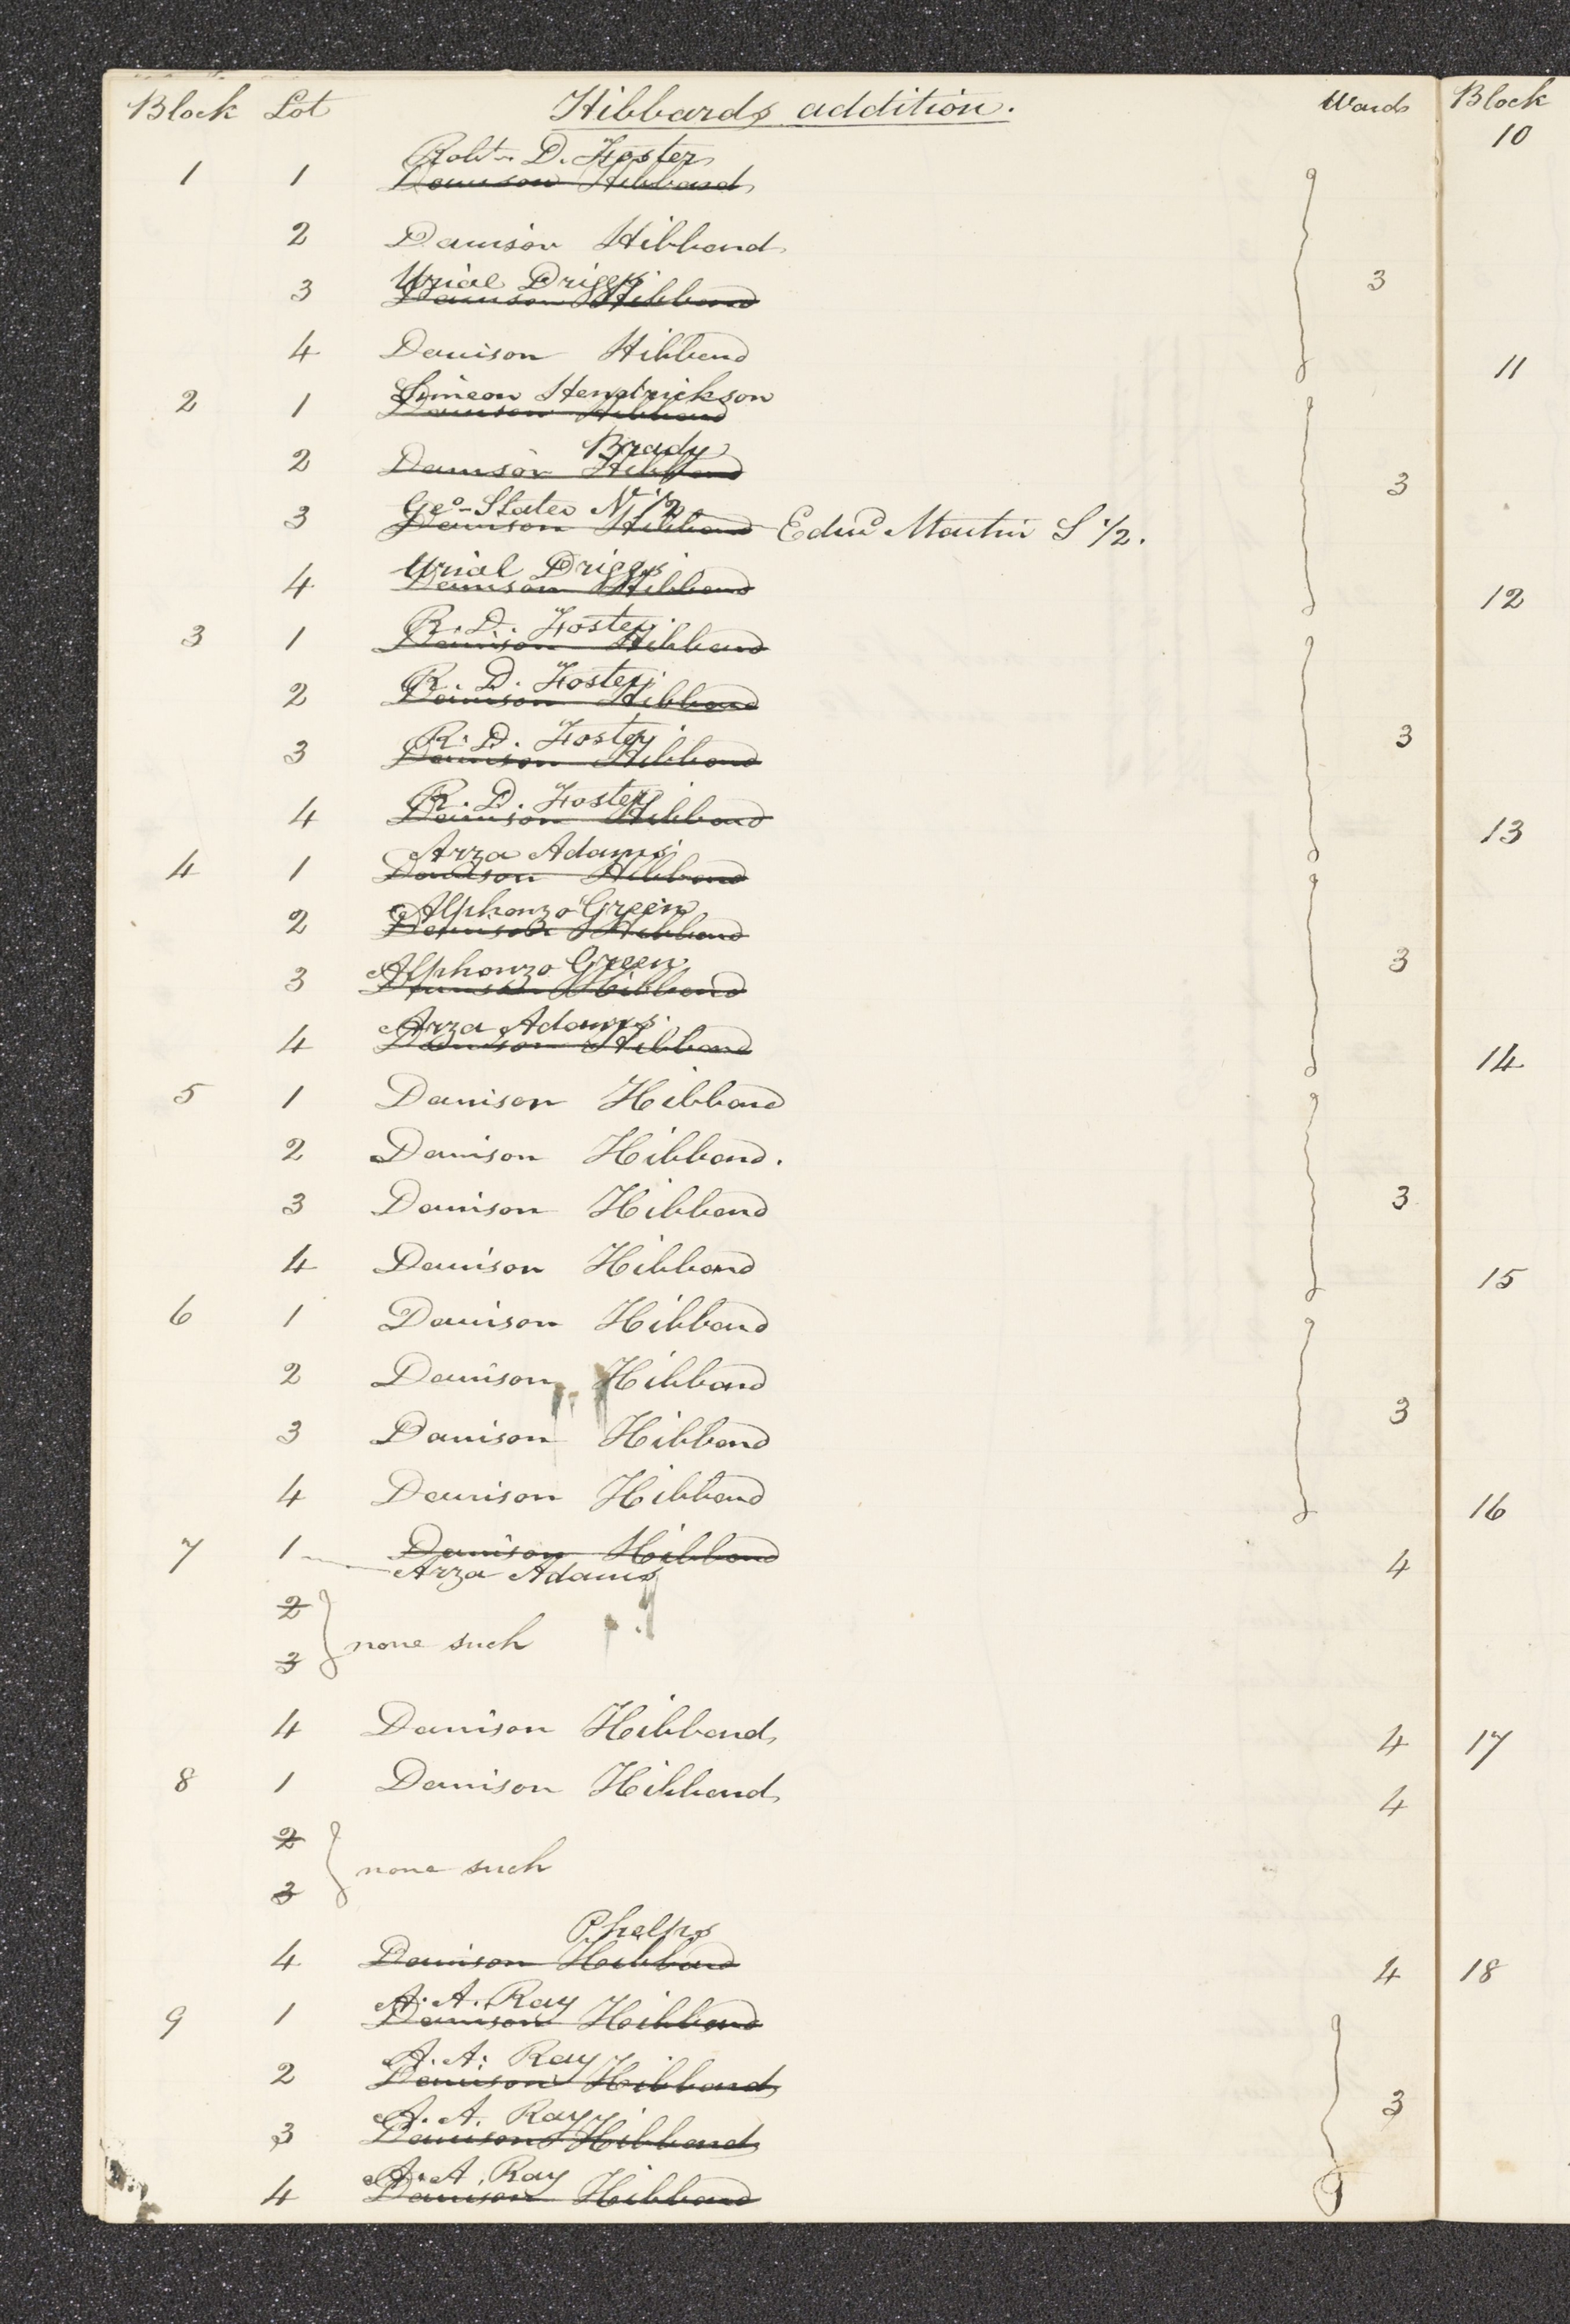 Block Lot Hibbards addition. Wards Block
10
Robt. D. Foster
1 1 Davison Hibbard
2 Davison Hibbard
Urial Driggs
3 Davison Hibbard 3
4 Davison Hibbard 11
Simeon Hendrickson
2 1 Davison Hibbard
Brady
2 Davison Hibbard 3
Geo. Slater N 1/2
3 Davison Hibbard Edwd Martin S 1/2.
Urial Driggs
4 Davison Hibbard 12
R. D. Foster
3 1 Davison Hibbard
R. D. Foster
2 Davison Hibbard
R. D. Foster
3 Davison Hibbard 3
R. D. Foster
4 Davison Hibbard 13
Arza Adams
4 1 Davison Hibbard
Alphonzo Green
2 Davison Hibbard
Alphonzo Green
3 Davison Hibbard 3
Arza Adams
4 Davison Hibbard 14
5 1 Davison Hibbard
2 Davison Hibbard.
3 Davison Hibbard 3
4 Davison Hibbard 15
6 1 Davison Hibbard
2 Davison Hibbard
3 Davison Hibbard 3
4 Davison Hibbard 16
7 1 Davison Hibbard 4
Arza Adams
2
none such
3
4 Davison Hibbard 4 17
8 1 Davison Hibbard 4
2
none such
3
Phelps
4 Davison Hibbard 4 18
A. A. Ray
9 1 Davison Hibbard
A. A. Ray
2 Davison Hibbard
A. A. Ray
3 Davison Hibbard 3
A. A. Ray
4 Davison Hibbard